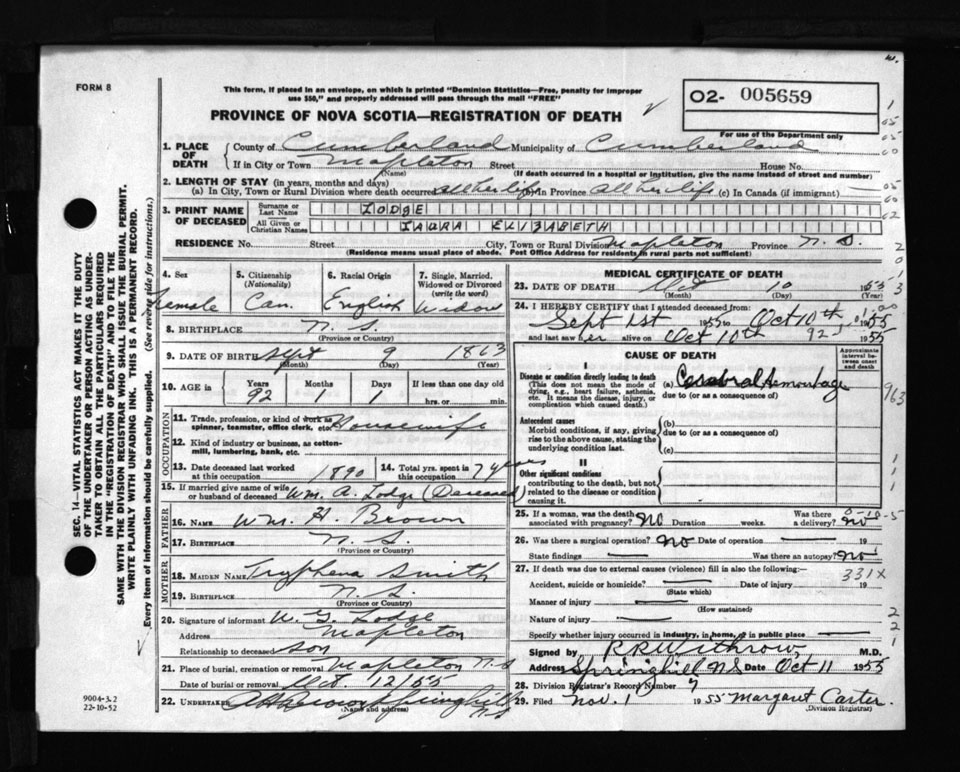 FORM 8
This form, if placed in an envelope, on which is printed "Dominion Statistics—Free, penalty for improper
use $50," and properly addressed will pass through the mail "FREE"
PROVINCE OF NOVA SCOTIA—REGISTRATION OF DEATH
O2- 005659
For use of the Department only
SEC. 14—VITAL STATISTICS ACT MAKES IT THE DUTY
OF THE UNDERTAKER OR PERSON ACTING AS UNDER-
TAKER TO OBTAIN ALL THE PARTICULARS REQUIRED
IN THE "REGISTRATION OF DEATH" AND TO FILE THE
SAME WITH THE DIVISION REGISTRAR WHO SHALL ISSUE THE BURIAL PERMIT.
WRITE PLAINLY WITH UNFADING INK. THIS IS A PERMANENT RECORD.
Every item of information should be carefully supplied. (See reverse side for instructions.)
1. PLACE OF DEATH County of Cumberland Municipality of Cumberland
If in City or Town Mapleton Street House No.
(Name) (If death occurred in a hospital or institution, give the name instead of street and number)
2. LENGTH OF STAY (in years, months and days)
(a) In City, Town or Rural Division where death occurred all her life (b) In Province all her life (c) In Canada (if immigrant)
3. PRINT NAME OF DECEASED Surname or Last Name LODGE
All Given or Christian Names LAURA ELIZABETH
RESIDENCE No. Street City, Town or Rural Division Mapleton Province N.S.
(Residence means usual place of abode. Post Office Address for residents in rural parts not sufficient)
4. Sex 5. Citizenship (Nationality) 6. Racial Origin 7. Single, Married, Widowed or Divorced (write the word)
Female Can. English Widow
8. BIRTHPLACE N.S.
(Province or Country)
9. DATE OF BIRTH Sept 9 1863
(Month) (Day) (Year)
10. AGE in Years Months Days If less than one day old
92 1 1 hrs. or min.
OCCUPATION
11. Trade, profession, or kind of work as
spinner, teamster, office clerk, etc. Housewife
12. Kind of industry or business, as cotton-
mill, lumbering, bank, etc.
13. Date deceased last worked at this occupation 1890 14. Total yrs. spent in this occupation 7 years
15. If married give name of wife
or husband of deceased Wm. A. Lodge (Deceased)
FATHER
16. NAME Wm. H. Brown
17. BIRTHPLACE N.S.
(Province or Country)
MOTHER
18. MAIDEN NAME Tryphena Smith
19. BIRTHPLACE N.S.
(Province or Country)
20. Signature of informant W. G. Lodge
Address Mapleton
Relationship to deceased son
21. Place of burial, cremation or removal Mapleton N.S
Date of burial or removal Oct. 12/55
22. UNDERTAKER Springhill
(Name and address)
9004-3.2
22-10-52
MEDICAL CERTIFICATE OF DEATH
23. DATE OF DEATH Oct 10 1955
(Month) (Day) (Year)
24. I HEREBY CERTIFY that I attended deceased from:
Sept 1st 1955 to Oct 10th 1955
and last saw her alive on Oct 10th 1955
CAUSE OF DEATH
Approximate interval between onset and death
I
Disease or condition directly leading to death
(This does not mean the mode of dying, e.g., heart failure, asthenia, etc. It means the disease, injury, or complication which caused death.)
(a) Cerebral Hemorrhage
due to (or as a consequence of)
Antecedent causes
Morbid conditions, if any, giving rise to the above cause, stating the underlying condition last.
(b)
due to (or as a consequence of)
(c)
II
Other significant conditions
contributing to the death, but not related to the disease or condition causing it.
25. If a woman, was the death associated with pregnancy? No Duration weeks. Was there a delivery? no
26. Was there a surgical operation? No Date of operation 19
State findings Was there an autopsy? No
27. If death was due to external causes (violence) fill in also the following:—
331X
Accident, suicide or homicide? Date of injury 19
(State which)
Manner of injury
(How sustained)
Nature of injury
Specify whether injury occurred in industry, in home, or in public place
Signed by R R Withrow, M.D.
Address Springhill NS Date Oct 11 1955
28. Division Registrar's Record Number 7
29. Filed Nov. 1 1955 Margaret Carter
(Division Registrar)